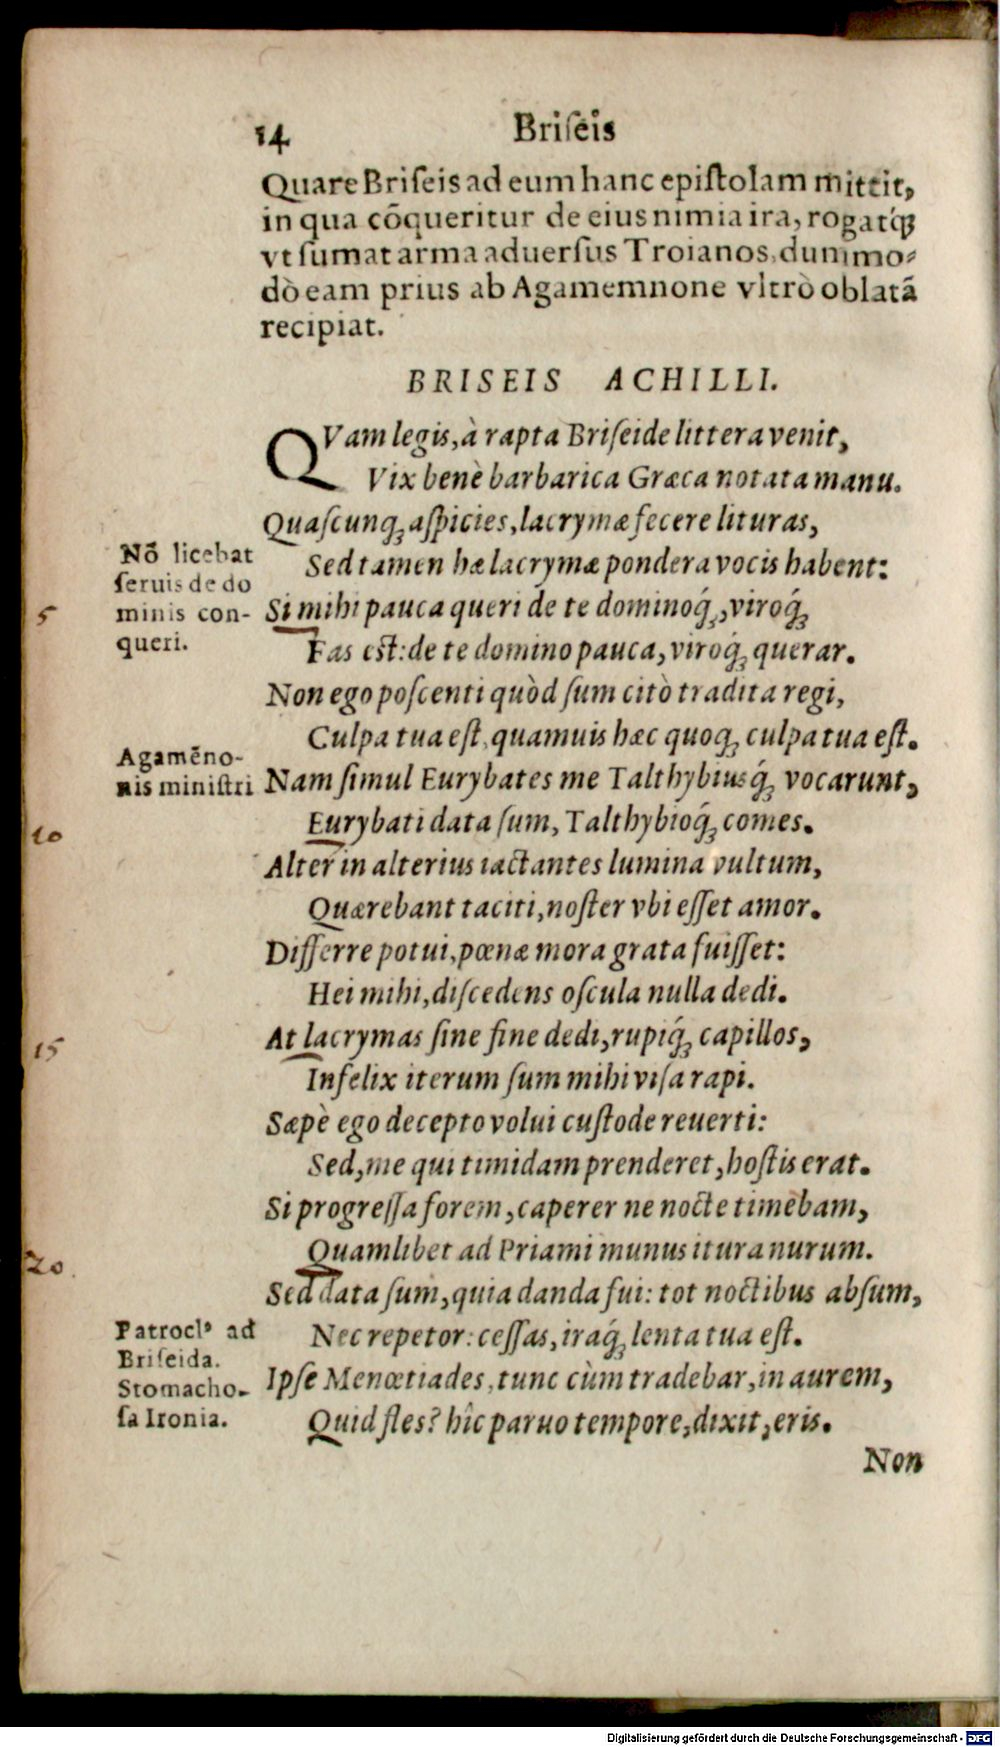 14 Briſeis
Quare Briſeis ad eum hanc epiſtolam mittit,
in qua cõqueritur de eius nimia ira, rogatq́ꝫ
vt ſumat arma aduerſus Troianos, dummo-
dò eam prius ab Agamemnone vltrò oblatã
recipiat.
BRISEIS ACHILLI.
QVam legis, à rapta Briſeide littera venit,
Vix benè barbarica Græca notata manu.
Quaſcunqꝫ aſpicies, lacrymæ fecere lituras,
Sed tamen hæ lacrymæ pondera vocis habent:
Si mihi pauca queri de te dominoq́ꝫ, viroq́ꝫ
Fas eſt: de te domino pauca, viroq́ꝫ querar.
Non ego poſcenti quòd ſum citò tradita regi,
Culpa tua eſt, quamuis hæc quoqꝫ culpa tua eſt.
Nam ſimul Eurybates me Talthybiusq́ꝫ vocarunt,
Eurybati data ſum, Talthybioq́ꝫ comes.
Alter in alterius iactantes lumina vultum,
Quærebant taciti, noſter vbi eſſet amor.
Differre potui, pœnæ mora grata fuiſſet:
Hei mihi, diſcedens oſcula nulla dedi.
At lacrymas ſine fine dedi, rupiq́ꝫ capillos,
Infelix iterum ſum mihi viſa rapi.
Sæpè ego decepto volui cuſtode reuerti:
Sed, me qui timidam prenderet, hoſtis erat.
Si progreſſa forem, caperer ne nocte timebam,
Quamlibet ad Priami munus itura nurum.
Sed data ſum, quia danda fui: tot noctibus abſum,
Nec repetor: ceſſas, iraq́ꝫ lenta tua eſt.
Ipſe Menœtiades, tunc cùm tradebar, in aurem,
Quid fles? hîc paruo tempore, dixit, eris.
Non
Nõ licebat
ſeruis de do
minis con-
queri.
Agamẽno-
nis miniſtri
Patrocl⁹ ad
Briſeida.
Stomacho-
ſa Ironia.
5
10
15
20.
Digitalisierung gefördert durch die Deutsche Forschungsgemeinschaft - DFG